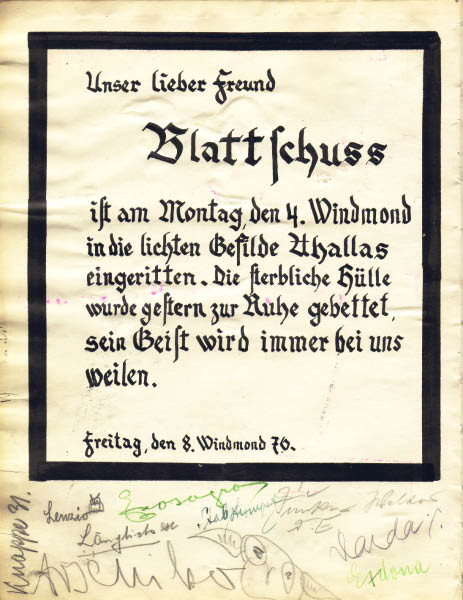 Unser lieber Freund
Blattschuss
ist am Montag, den 4. Windmond
in die lichten Gefilde Uhallas
eingeritten. Die sterbliche Hülle
wurde gestern zur Ruhe gebettet,
sein Geist wird immer bei uns
weilen.
Freitag, den 8. Windmond 76.
Knappe 31.
Lenzio